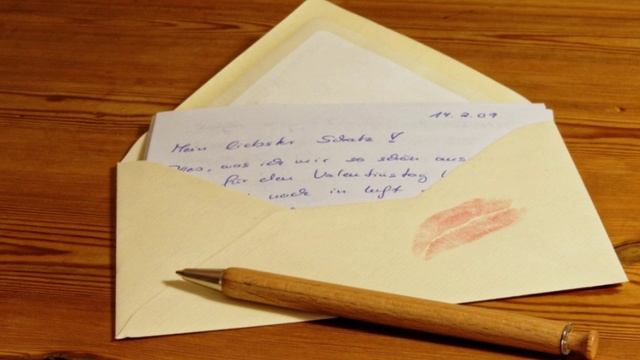 14.2.09
Mein liebster Schatz
was ich mir so schön aus
für den Valentinstag
nach in Luft